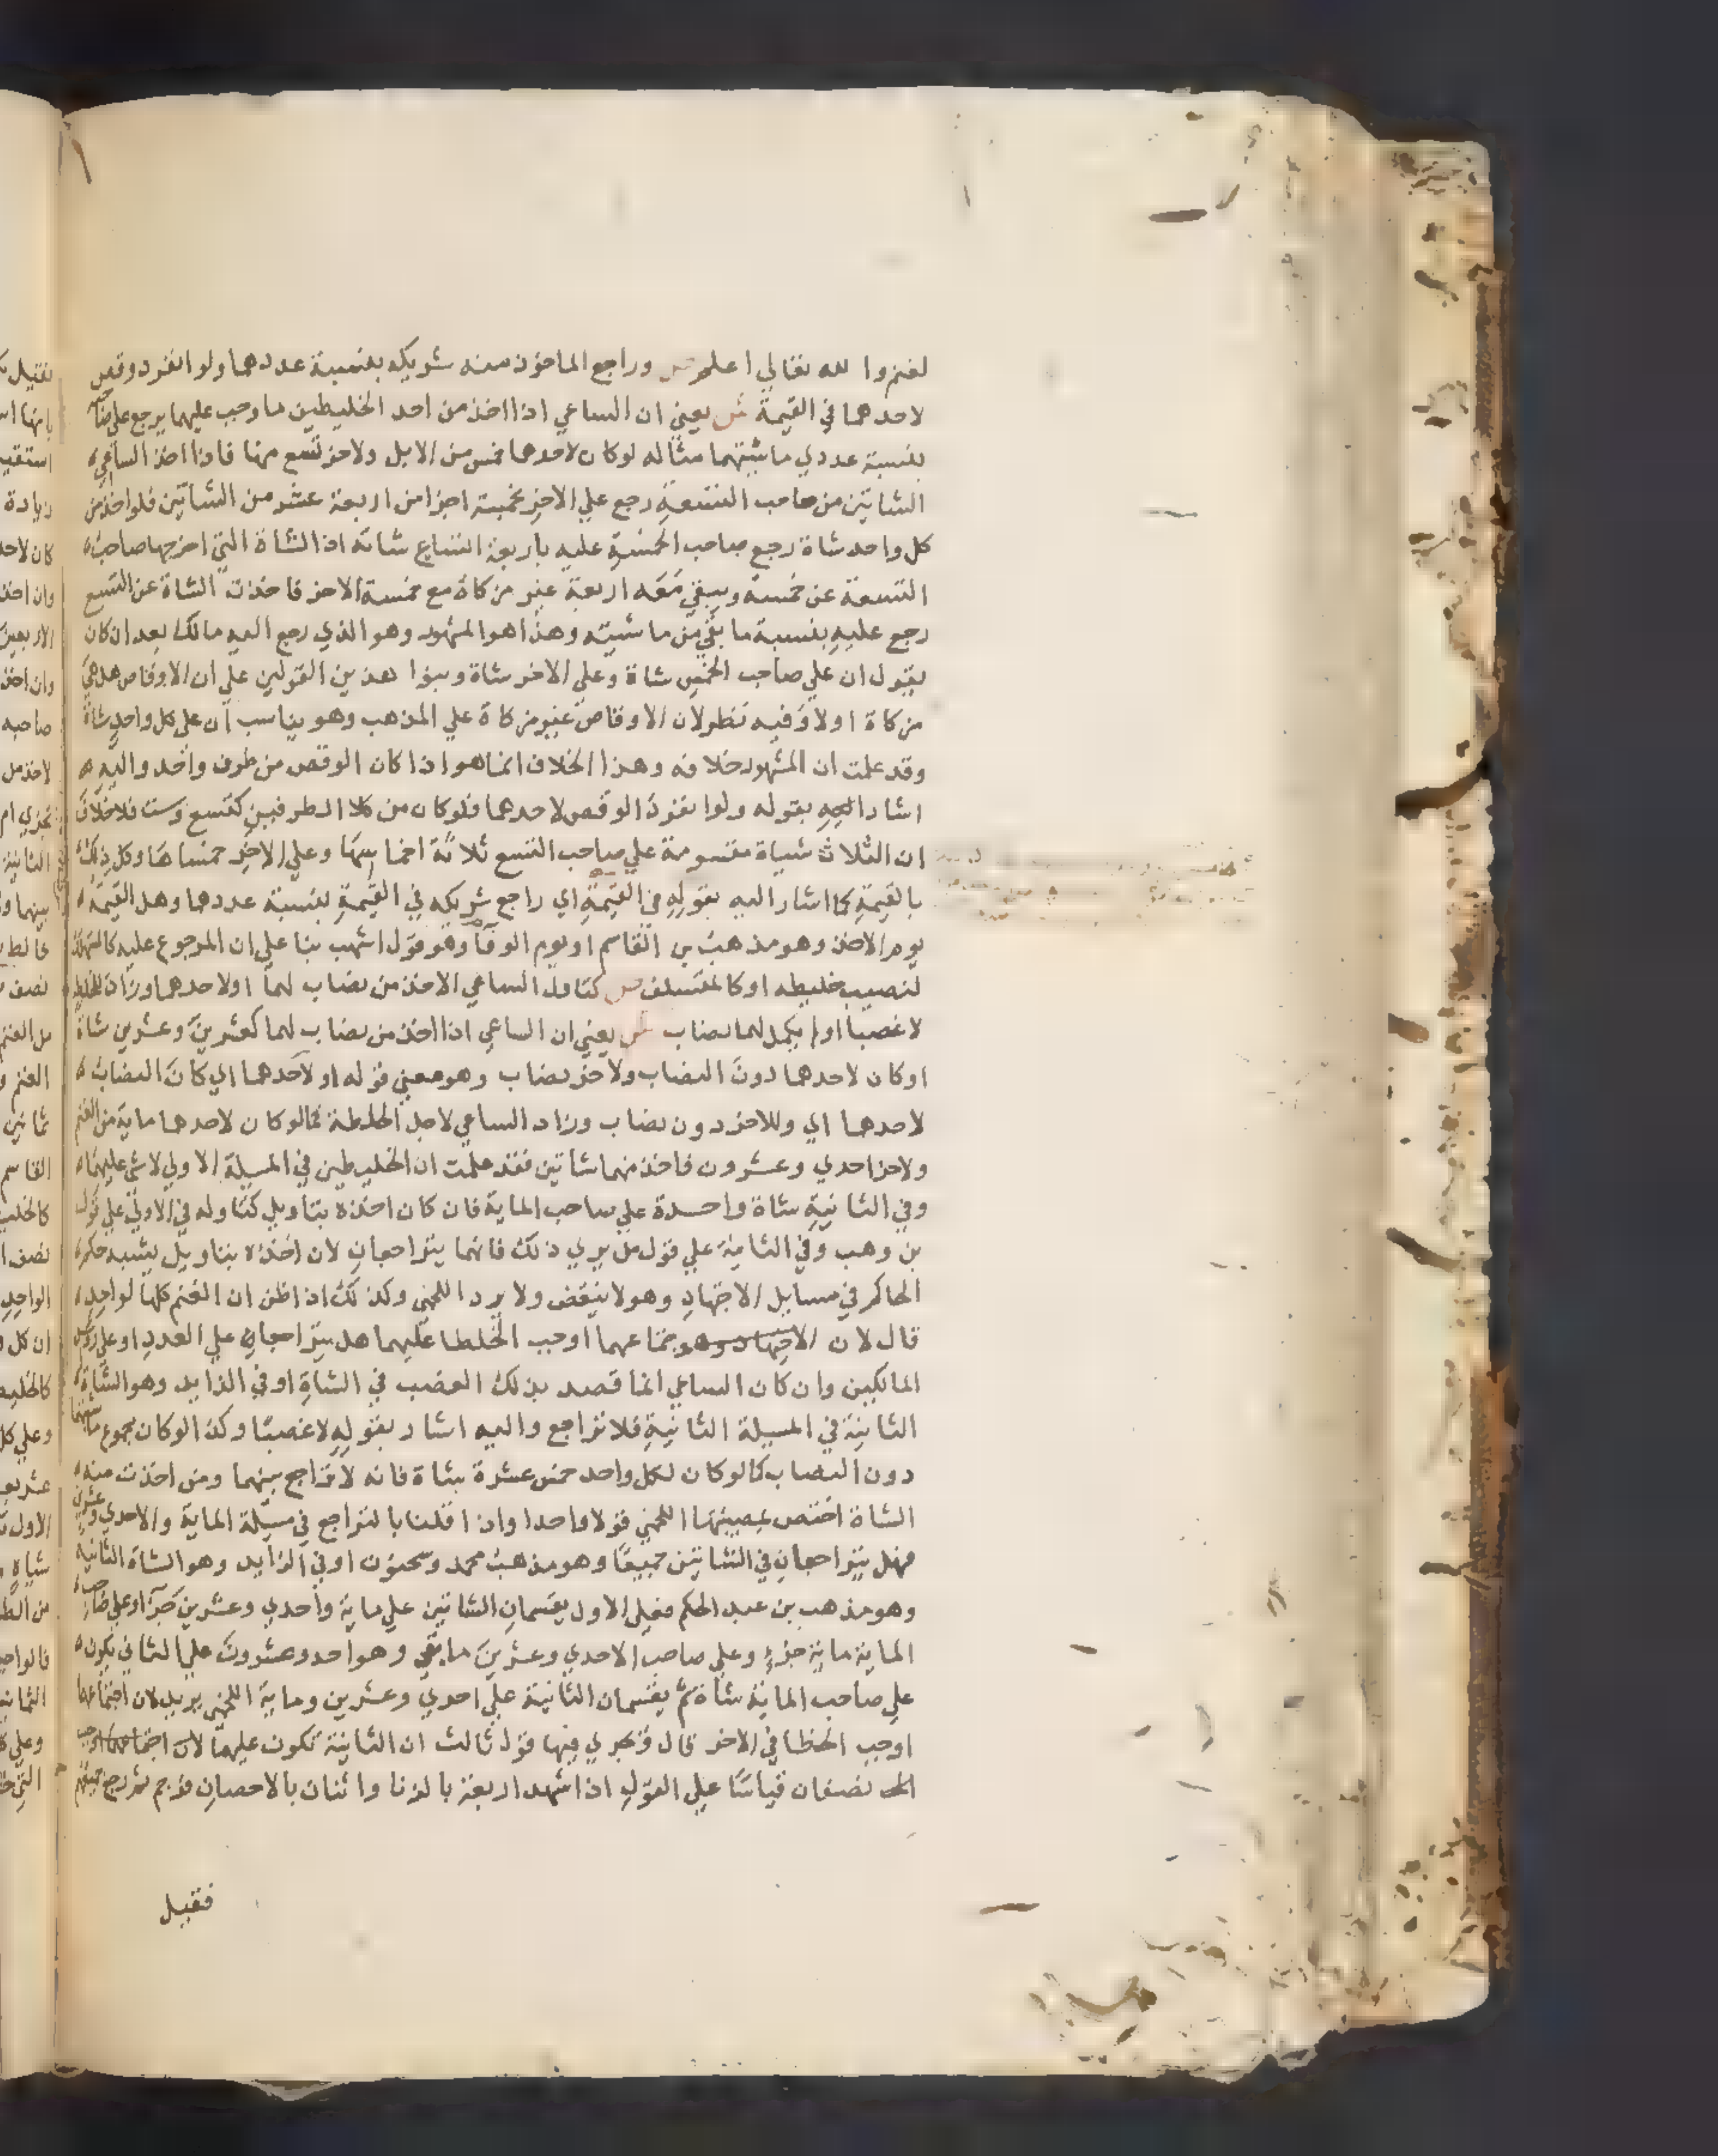 لغنم والله تعالي اعلم ص وراجع الماخوذ منه شريكه بنسبة عددهما ولو انفرد وقص
لاحدهما في القيمة ش يعني ان الساعي اذا اخذ من احد الخليطين ما وجب عليهما يرجع علي صاحبه
بنسبة عددي ماشيتهما مثاله لو كان لاحدهما خمس من الابل ولاخر تسع منها فاذا اخذ الساعي
الشاتين من صاحب التسعة رجع علي الاخر بخمسة اجزا من اربعة عشر من الشاتين فلو اخذ من
كل واحد شاة رجع صاحب الخمسة عليه باربعة اتساع شاته اذ الشاة التي اخرجها صاحب
التسعة عن خمسة ويبقي معه اربعة غير مزكاة مع خمسة الاخر فاخذت الشاة عن التسع
رجع عليه بنسبة ما بقي من ماشيته وهذا هو المشهور وهو الذي رجع اليه مالك بعد ان كان
يقول ان علي صاحب الخمس شاة وعلي الاخر شاة وبنوا هذين القولين علي ان الاوقاص هل هي
مزكاة اولا وفيه نظر لان الاوقاص غير مزكاة علي المذهب وهو يناسب ان علي كل واحد شاة
وقد علمت ان المشهور خلافه وهذا الخلاف انما هو اذا كان الوقص من طرف واحد واليه
اشار اليه بقوله ولو انفرد الوقص لاحدهما فلو كان من كلا الطرفين كتسع وست فلا خلاف
ان الثلاث شياة مقسومة علي صاحب التسع ثلاثة اخماسها وعلي الاخر خمساها وكل ذلك
بالقيمة كما اشار اليه بقوله في القيمة اي راجع شريكه في القيمة بنسبة عددها وهل القيمة
يوم الاخذ وهو مذهب بن القاسم او يوم الوفا وهو قول اشهب بنا علي ان المرجوع عليه كالمستهلك
لنصيب خليطه او كالمتسلف ص كتاول الساعي الاخذ من نصاب لهما او لاحدهما وزاد للخلطة
لا غصبا او لم يكمل لهما نصاب ش يعني ان الساعي اذا اخذ من نصاب لهما كعشرين وعشرين شاة
او كان لاحدهما دون النصاب ولاخر نصاب وهو معني قوله او لاحدهما اي كان النصاب
لاحدهما اي وللاخر دون نصاب وزاد الساعي لاجل الخلطة كما لو كان لاحدهما ماية من الغنم
ولاخر احدي وعشرون فاخذ منهما شاتين فقد علمت ان الخليطين في المسيلة الاولي لا شي عليهما
وفي الثانية شاة واحدة علي صاحب الماية فان كان اخذه بتاويل كتاوله في الاولي علي قول
بن وهب وفي الثانية علي قول من يري ذلك فانهما يتراجعان لان اخذه بتاويل يشبه حكم
الحاكم في مسايل الاجتهاد وهو لا ينقض ولا يرد اللخمي وكذلك اذا ظن ان الغنم كلها لواحد
قال لان اجتماعهما اوجب الخلطا عليهما هل يتراجعان علي العدد او علي روس
المالكين وان كان الساعي انما قصد بذلك الغصب في الشاة او في الزايد وهو الشاة
الثانية في المسيلة الثانية فلا تراجع واليه اشار بقوله لا غصبا وكذا لو كان مجموع ماشيتهما
دون النصاب كما لو كان لكل واحد خمس عشرة شاة فانه لا تراجع بينهما ومن اخذت منه
الشاة اختص بمصيبتها اللخمي قولا واحدا واذا قلنا بالتراجع في مسيلة الماية والاحدي وعشرين
فهل يتراجعان في الشاتين جميعا وهو مذهب محمد وسحنون او في الزايد وهو الشاة الثانية
وهو مذهب بن عبد الحكم فعلي الاول يقسمان الشاتين علي ماية واحدي وعشرين جزا وعلي صاحب
الماية ماية جزء وعلي صاحب الاحدي وعشرين ما بقي وهو احد وعشرون علي الثاني يكون
علي صاحب الماية شاة ثم يقسمان الثانية علي احدي وعشرين وماية اللخمي يريد لان اجتماعهما
اوجب الخطا في الاخر قال ويجري فيها قول ثالث ان الثانية تكون عليهما
نصفان قياسا علي القول اذا شهد اربعة بالزنا واثنان بالاحصان فرجم ثم رجع جميعهم
فقيل